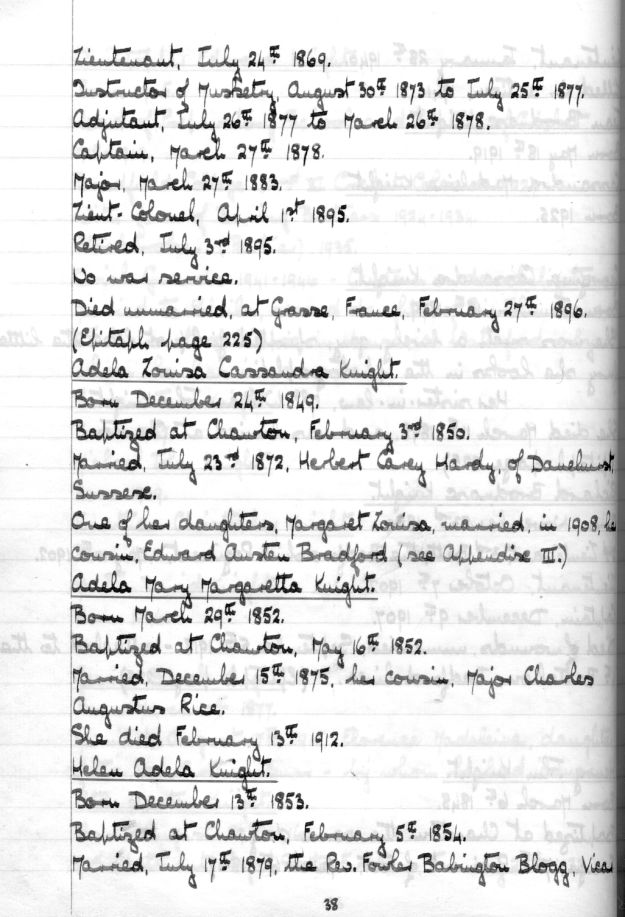 Lieutenant, July 24th 1869.
Instructor of Musketry, August 30th 1873 to July 25th 1877.
Adjutant, July 26th 1877 to March 26th 1878.
Captain, March 27th 1878.
Major, March 27th 1883.
Lieut-Colonel, April 1st 1895.
Retired, July 3rd 1895.
No war service.
Died unmarried, at Grasse, France, February 27th 1896.
(Epitaph page 225)
Adela Louisa Cassandra Knight.
Born December 24th 1849.
Baptized at Chawton, February 3rd 1850.
Married, July 23rd 1872, Herbert Carey Hardy, of Danehurst,
Sussex.
One of her daughters, Margaret Louisa, married, in 1908, he
cousin, Edward Austen Bradford (see Appendix III.)
Adela Mary Margaretta Knight.
Born March 29th 1852.
Baptized at Chawton, May 16th 1852.
Married, December 15th 1875, her cousin, Major Charles
Augustus Rice.
She died February 13th 1912.
Helen Adela Knight.
Born December 13th 1853.
Baptized at Chawton, February 5th 1854.
Married, July 17th 1879, the Rev. Fowler Babington Blogg, Vica
38